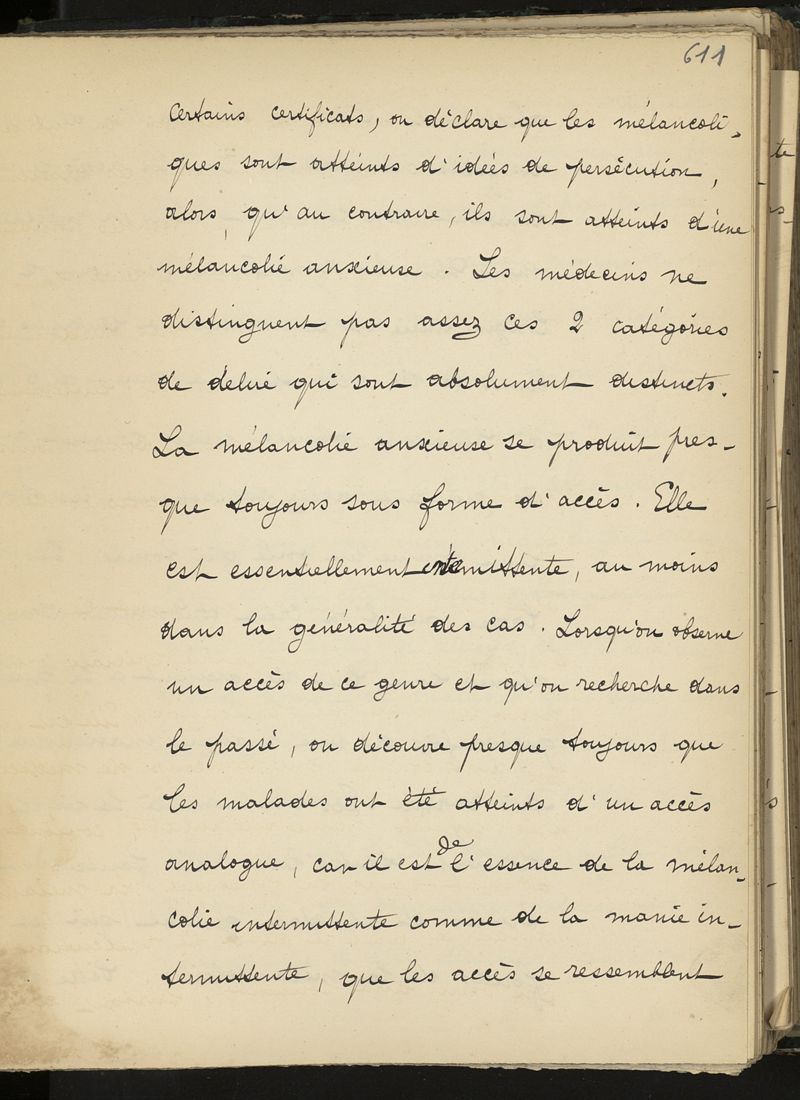 611
certains certificats, on déclare que les mélancoli-
ques sont atteints d'idées de persécution,
alors qu'au contraire, ils sont atteints d'une
mélancolie anxieuse. Les médecins ne
distinguent pas assez ces 2 catégories
de délire qui sont absolument distincts.
La mélancolie anxieuse se produit pres-
que toujours sous forme d'accès. Elle
est essentiellement intermittente, au moins
dans la généralité des cas. Lorsqu'on observe
un accès de ce genre et qu'on recherche dans
le passé, on découvre presque toujours que
les malades ont été atteints d'un accès
analogue, car il est de l'essence de la mélan-
colie intermittente comme de la manie in-
termittente, que les accès se ressemblent